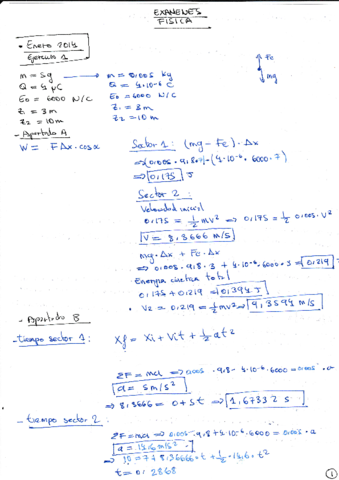 EXAMENES
FISICA
• Enero 2014
Ejercicio 1
m = 5g → m = 0.005 kg
Q = 4 μC Q = 4·10⁻⁶ C
E0 = 6000 N/C E0 = 6000 N/C
Z1 = 3m Z1 = 3m
Z2 = 10m Z2 = 10m
Fe
mg
- Apartado A
W = F Δx · cos α
Sector 1: (mg - Fe) · Δx
⇒ 0,175 J
Sector 2:
Velocidad inicial
0,175 = ½ mV² ⇒ 0,175 = ½ 0.005 · V²
V = 8,3666 m/s
mg · Δx + Fe · Δx
⇒ 0.005 · 9,8 · 3 + 4·10⁻⁶ · 6000 · 3 = 0,219 J
- Energia cinetica total
0,175 + 0,219 = 0,394 J
• V2 = 0,219 = ½ mv² ⇒ 9,3594 m/s
- Apartado B
- tiempo sector 1: Xf = Xi + Vit + ½ at²
ΣF = ma ⇒ 0.005 · 9,8 - 4·10⁻⁶ · 6000 = 0.005 · a
a = 5 m/s²
⇒ 8,3666 = 0 + 5t ⇒ 1,67332 s
- tiempo sector 2:
ΣF = ma ⇒ 0.005 · 9,8 + 4·10⁻⁶ · 6000 = 0.005 · a
a = 14,6 m/s²
⇒ 10 = 7 + 8,36666 · t + ½ · 14,6 · t²
t = 0,2868
1